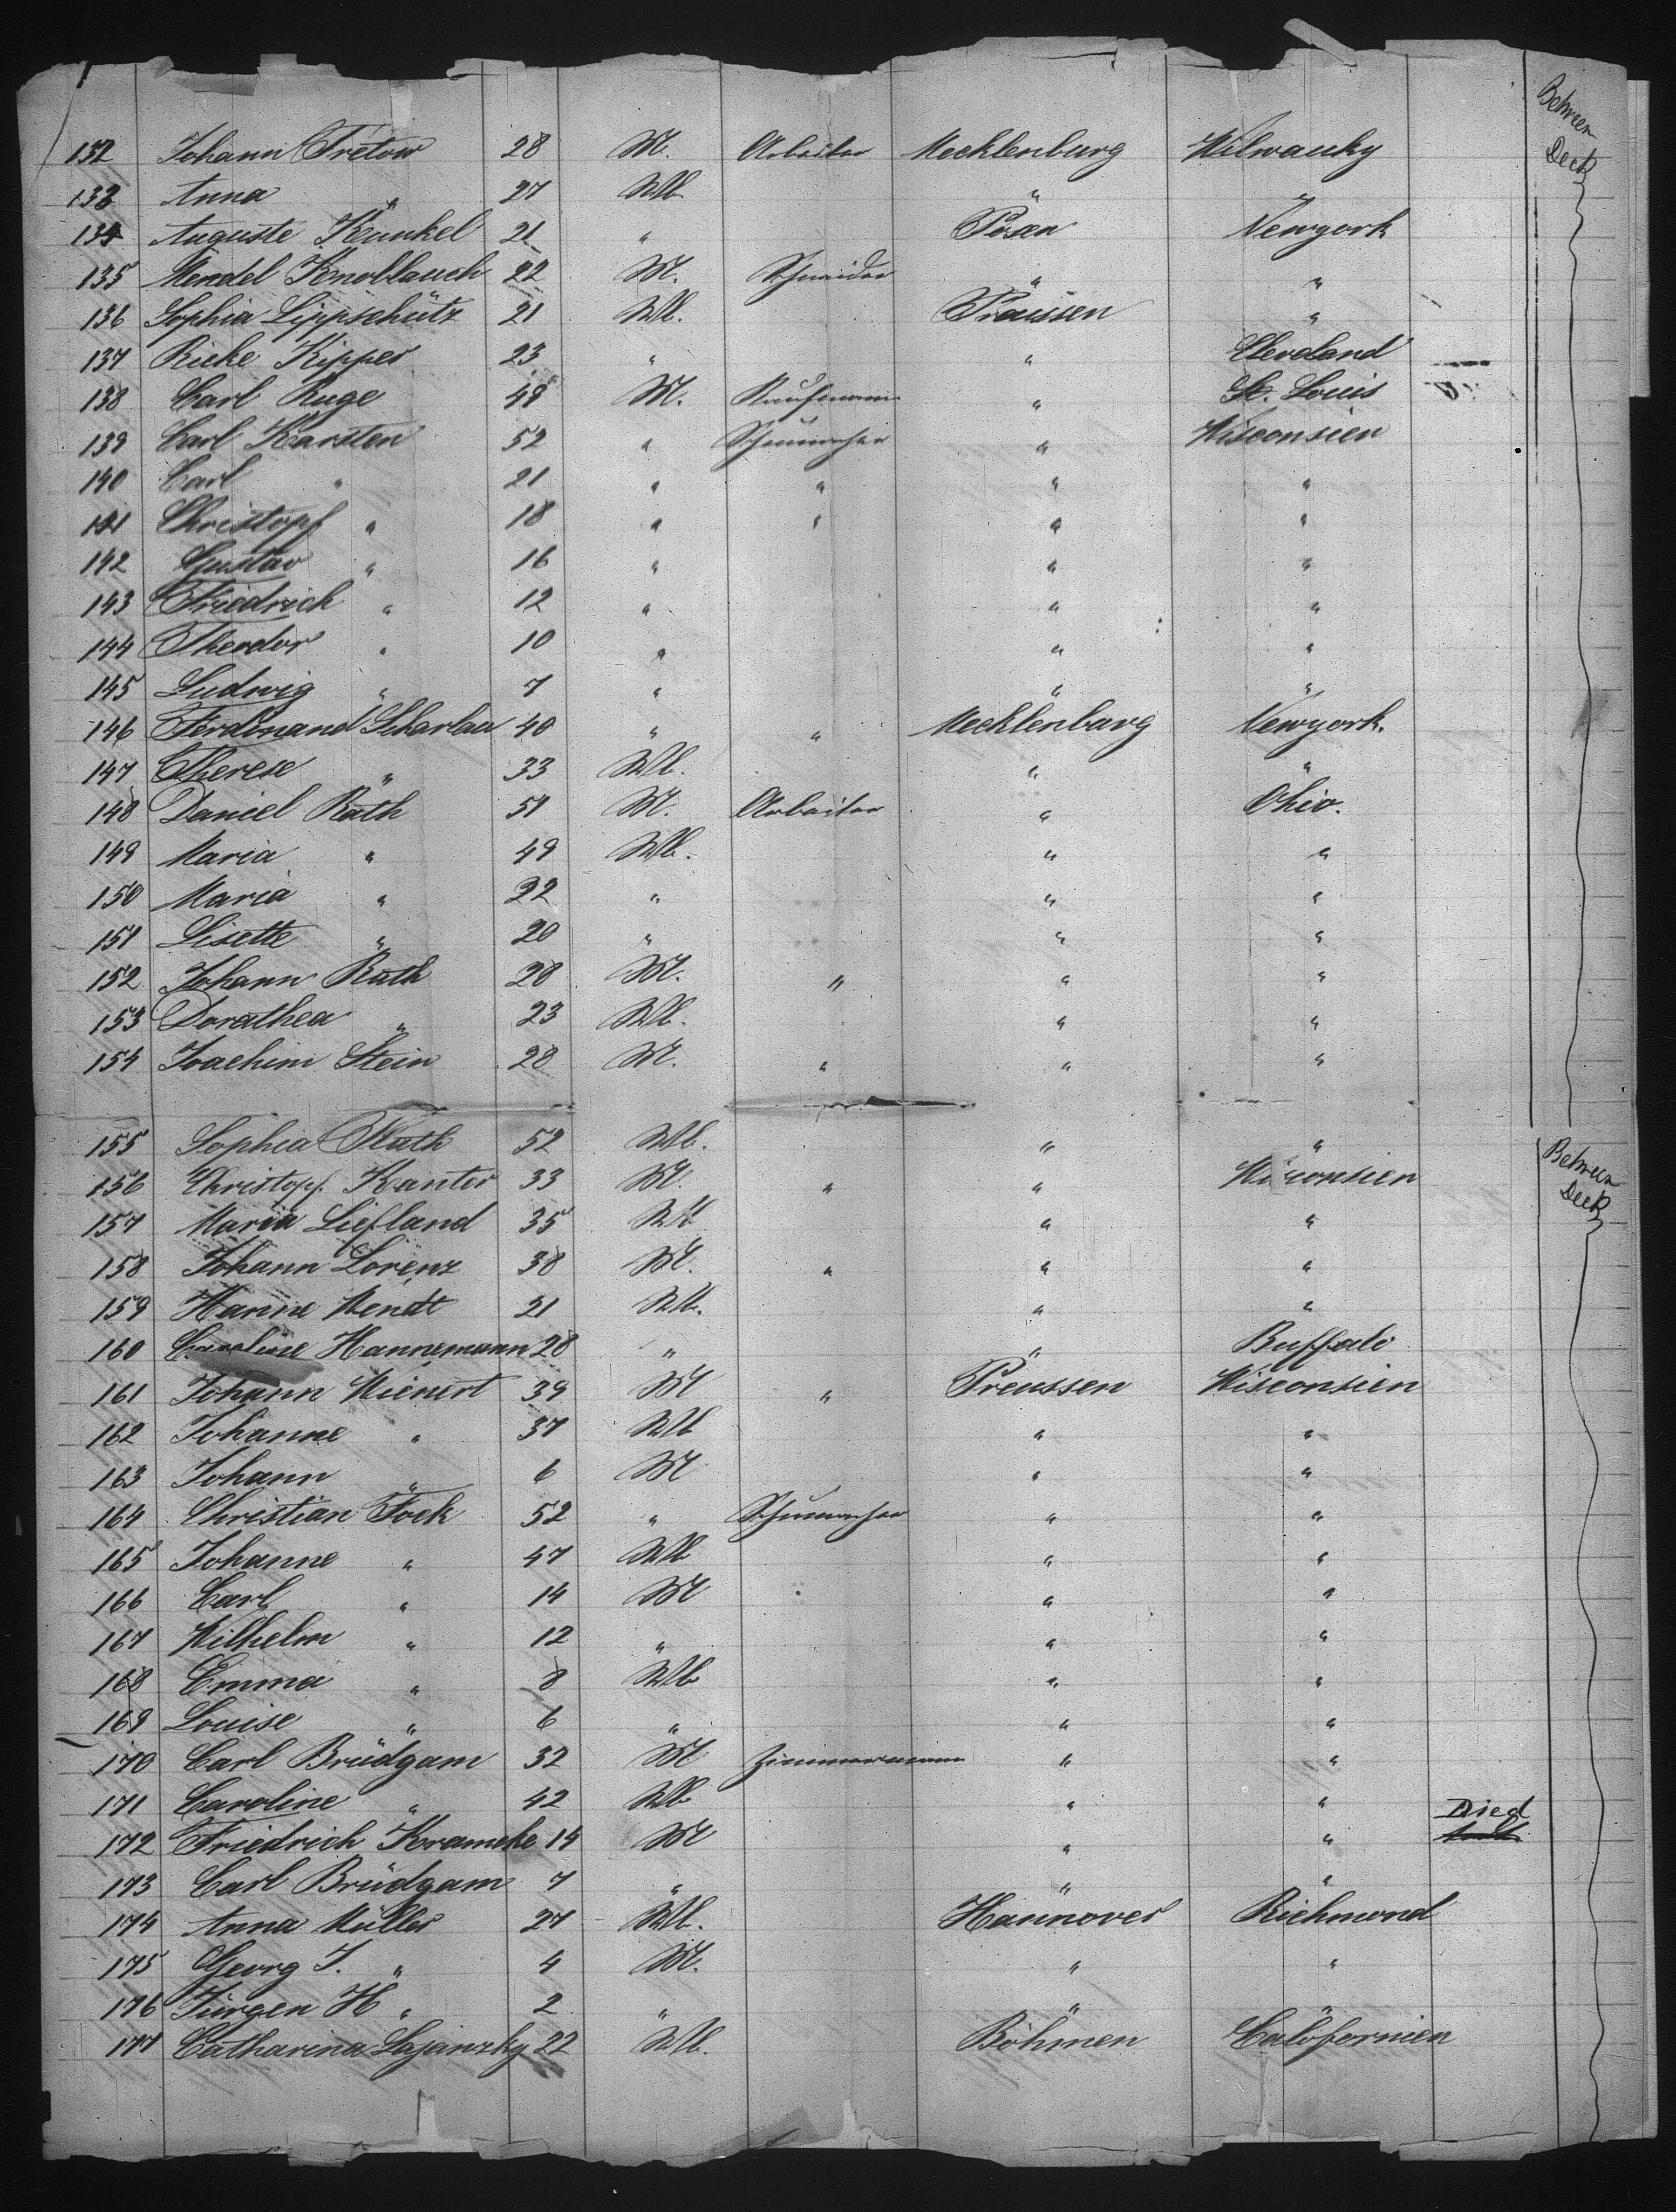 Between Deck
132 Johann Tretow 28 M. Arbeiter Mecklenburg Milwauky
133 Anna " 27 Wb. "
134 Auguste Kunkel 21 " Posen Newyork
135 Mendel Knoblauch 22 M. Schneider " "
136 Sophia Lippschütz 21 Wb. Preussen "
137 Rieke Kipper 23 " " Cleveland
138 Carl Ruge 48 M. Kaufmann " St. Louis
139 Carl Karsten 52 " Schumacher " Wisconsien
140 Carl " 21 " " " "
141 Christopf " 18 " " " "
142 Gustav " 16 " " "
143 Friedrich " 12 " " "
144 Theodor " 10 " " "
145 Ludwig " 7 " " "
146 Ferdinand Scharlau 40 " " Mecklenburg Newyork.
147 Therese " 33 Wb. " "
148 Daniel Rath 51 M. Arbeiter " Ohio.
149 Maria " 49 Wb. " "
150 Maria " 22 " " "
151 Lisette " 20 " " "
152 Johann Rath 28 M. " " "
153 Dorathea " 23 Wb. " "
154 Joachim Stein 28 M. " " "
155 Sophia Rath 52 Wb. " "
Between Deck
156 Christopf. Kanter 33 M. " " Wisconsien
157 Maria Liefland 35 Wb " "
158 Johann Lorenz 38 M. " " "
159 Hanne Wendt 21 Wb. " "
160 Caroline Hannemann 28 " " Buffalo
161 Johann Wienert 39 M " Preussen Wisconsien
162 Johanne " 37 Wb " "
163 Johann " 6 M " "
164 Christian Fock 52 " Schumacher " "
165 Johanne " 47 Wb " "
166 Carl " 14 M " "
167 Wilhelm " 12 " " "
168 Emma " 8 Wb " "
169 Louise " 6 " " "
170 Carl Brüdgam 32 M Zimmermann " "
171 Caroline " 42 Wb " "
172 Friedrich Krameke 14 M " " Died
173 Carl Brüdgam 7 " " "
174 Anna Müller 27 Wb. Hannover Richmond
175 Georg J. " 4 M. " "
176 Jürgen H " 2 " " "
177 Catharina Lajanzky 22 Wb. Böhmen Californien